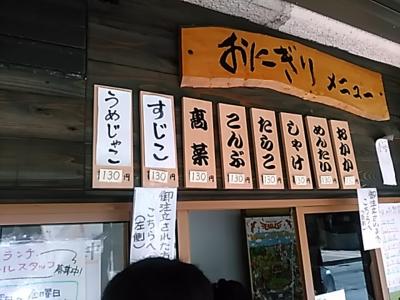 おにぎり メニュー
うめじゃこ
130円
すじこ
130円
高菜
130円
こんぶ
130円
たらこ
130円
しゃけ
130円
めんたい
130円
おかか
130円
御注文された方
こちらへ
(左側)
ランチ
ールスタッフ
募集中!